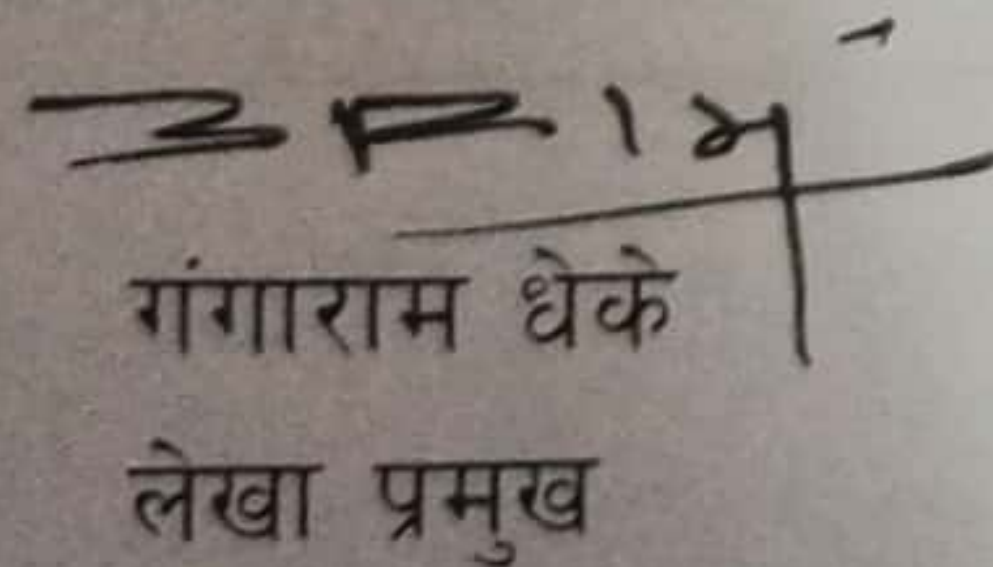 गंगाराम धेके
लेखा प्रमुख